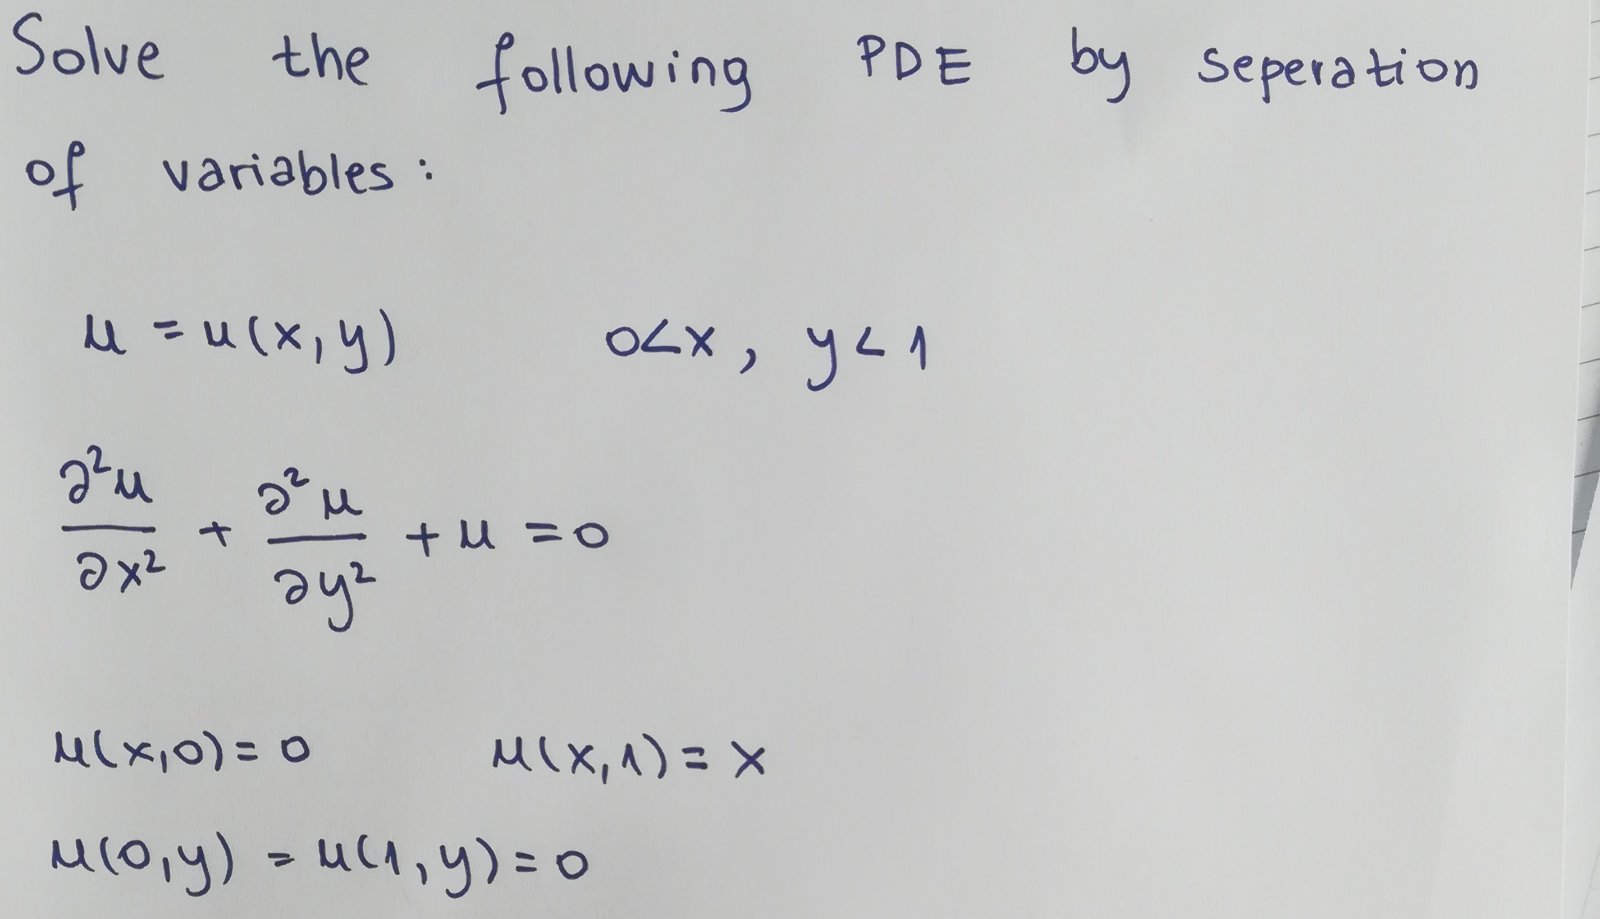 Solve the following PDE by seperation
of variables:
u = u(x,y) 0<x, y<1
∂²u/∂x² + ∂²u/∂y² + u = 0
u(x,0) = 0 u(x,1) = x
u(0,y) = u(1,y) = 0